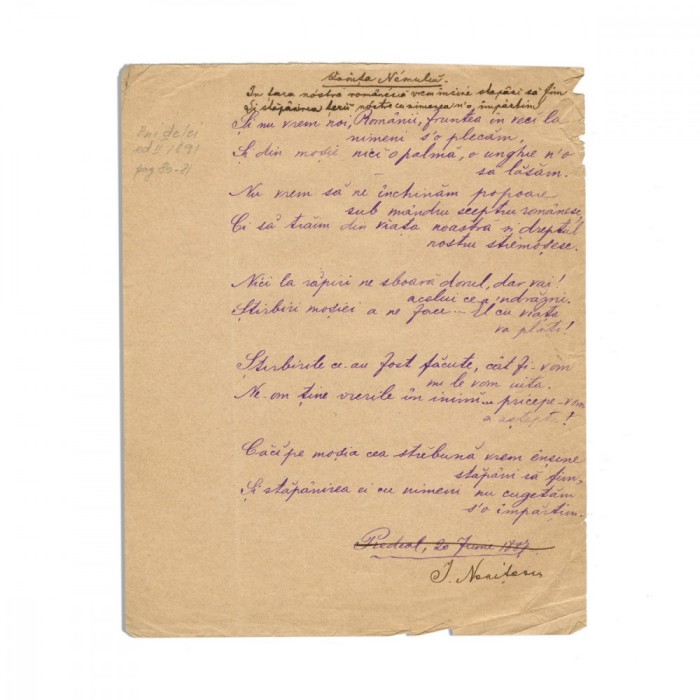 Voința Némului.
In tara nóstra românéscă vrem inșine stăpâni să fim
Și stăpânirea țerii nóstre cu nimenea n'o împărțim!
Și nu vrem noi, Românii, fruntea in veci la
nimeni s'o plecăm.
Și din moșie nici o palmă, o unghie n'o
să lăsăm.
Nu vrem să ne închinăm popoare
sub mândru sceptru românesc,
Ci să trăim din viața noastră și dreptul
nostru strémoșesc.
Nici la răpiri ne sboară dorul, dar vai!
acelui ce a 'ndrăsni.
Știrbiri moșiei a ne face... El cu viața
va plăti!
Știrbirile ce-au fost făcute, cât fi-vom
nu le vom uita.
Ne-om ține vrerile în inimi... pricepe-vom
a aștepta!
Căci pe moșia cea străbună vrem ênșine
stăpâni să fim,
Și stăpânirea ei cu nimeni nu cugetăm
s'o împărțim.
Predeal, 20 June 1887.
I. Nenițescu
ed II 1891
pag 80-81